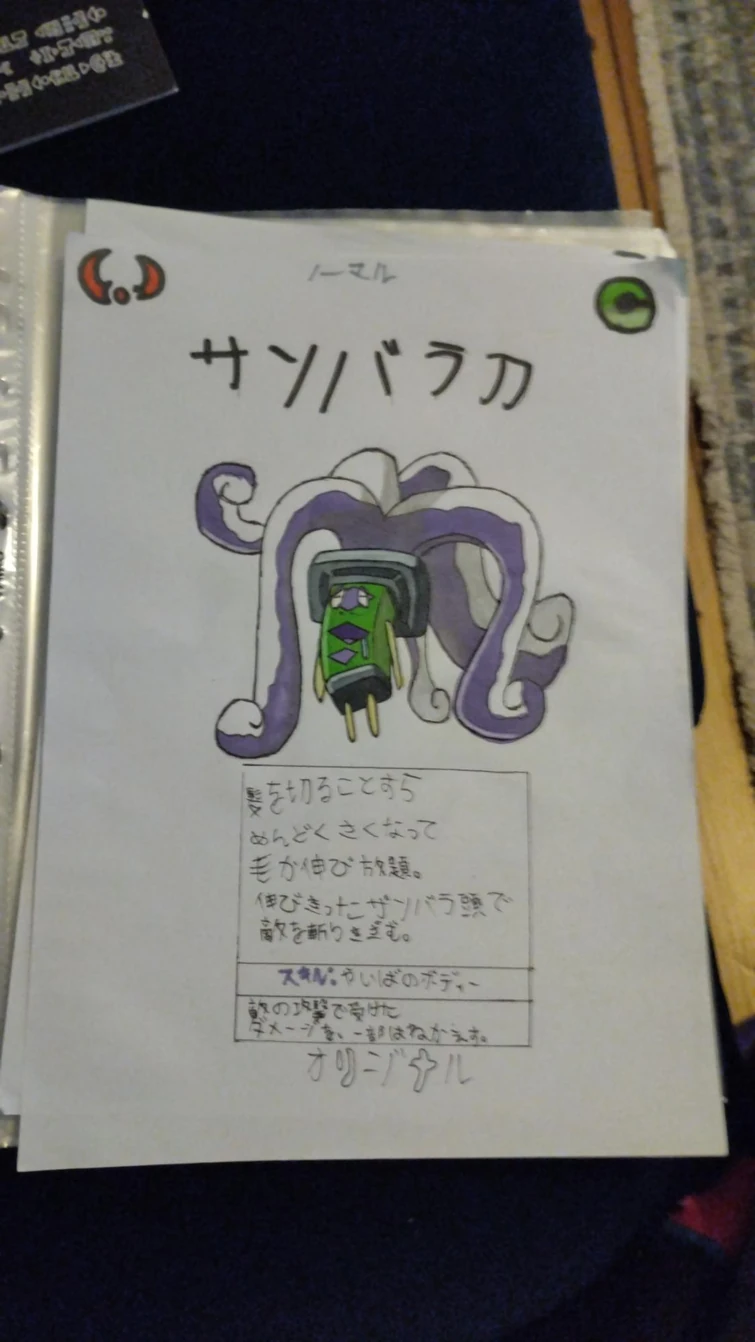 ノーマル
サンバラ刀
髪を切ることすら
めんどくさくなって
毛が伸び放題。
伸びきったザンバラ頭で
敵を斬りきざむ。
スキル:やいばのボディー
敵の攻撃で受けた
ダメージを、一部はねかえす。
オリジナル